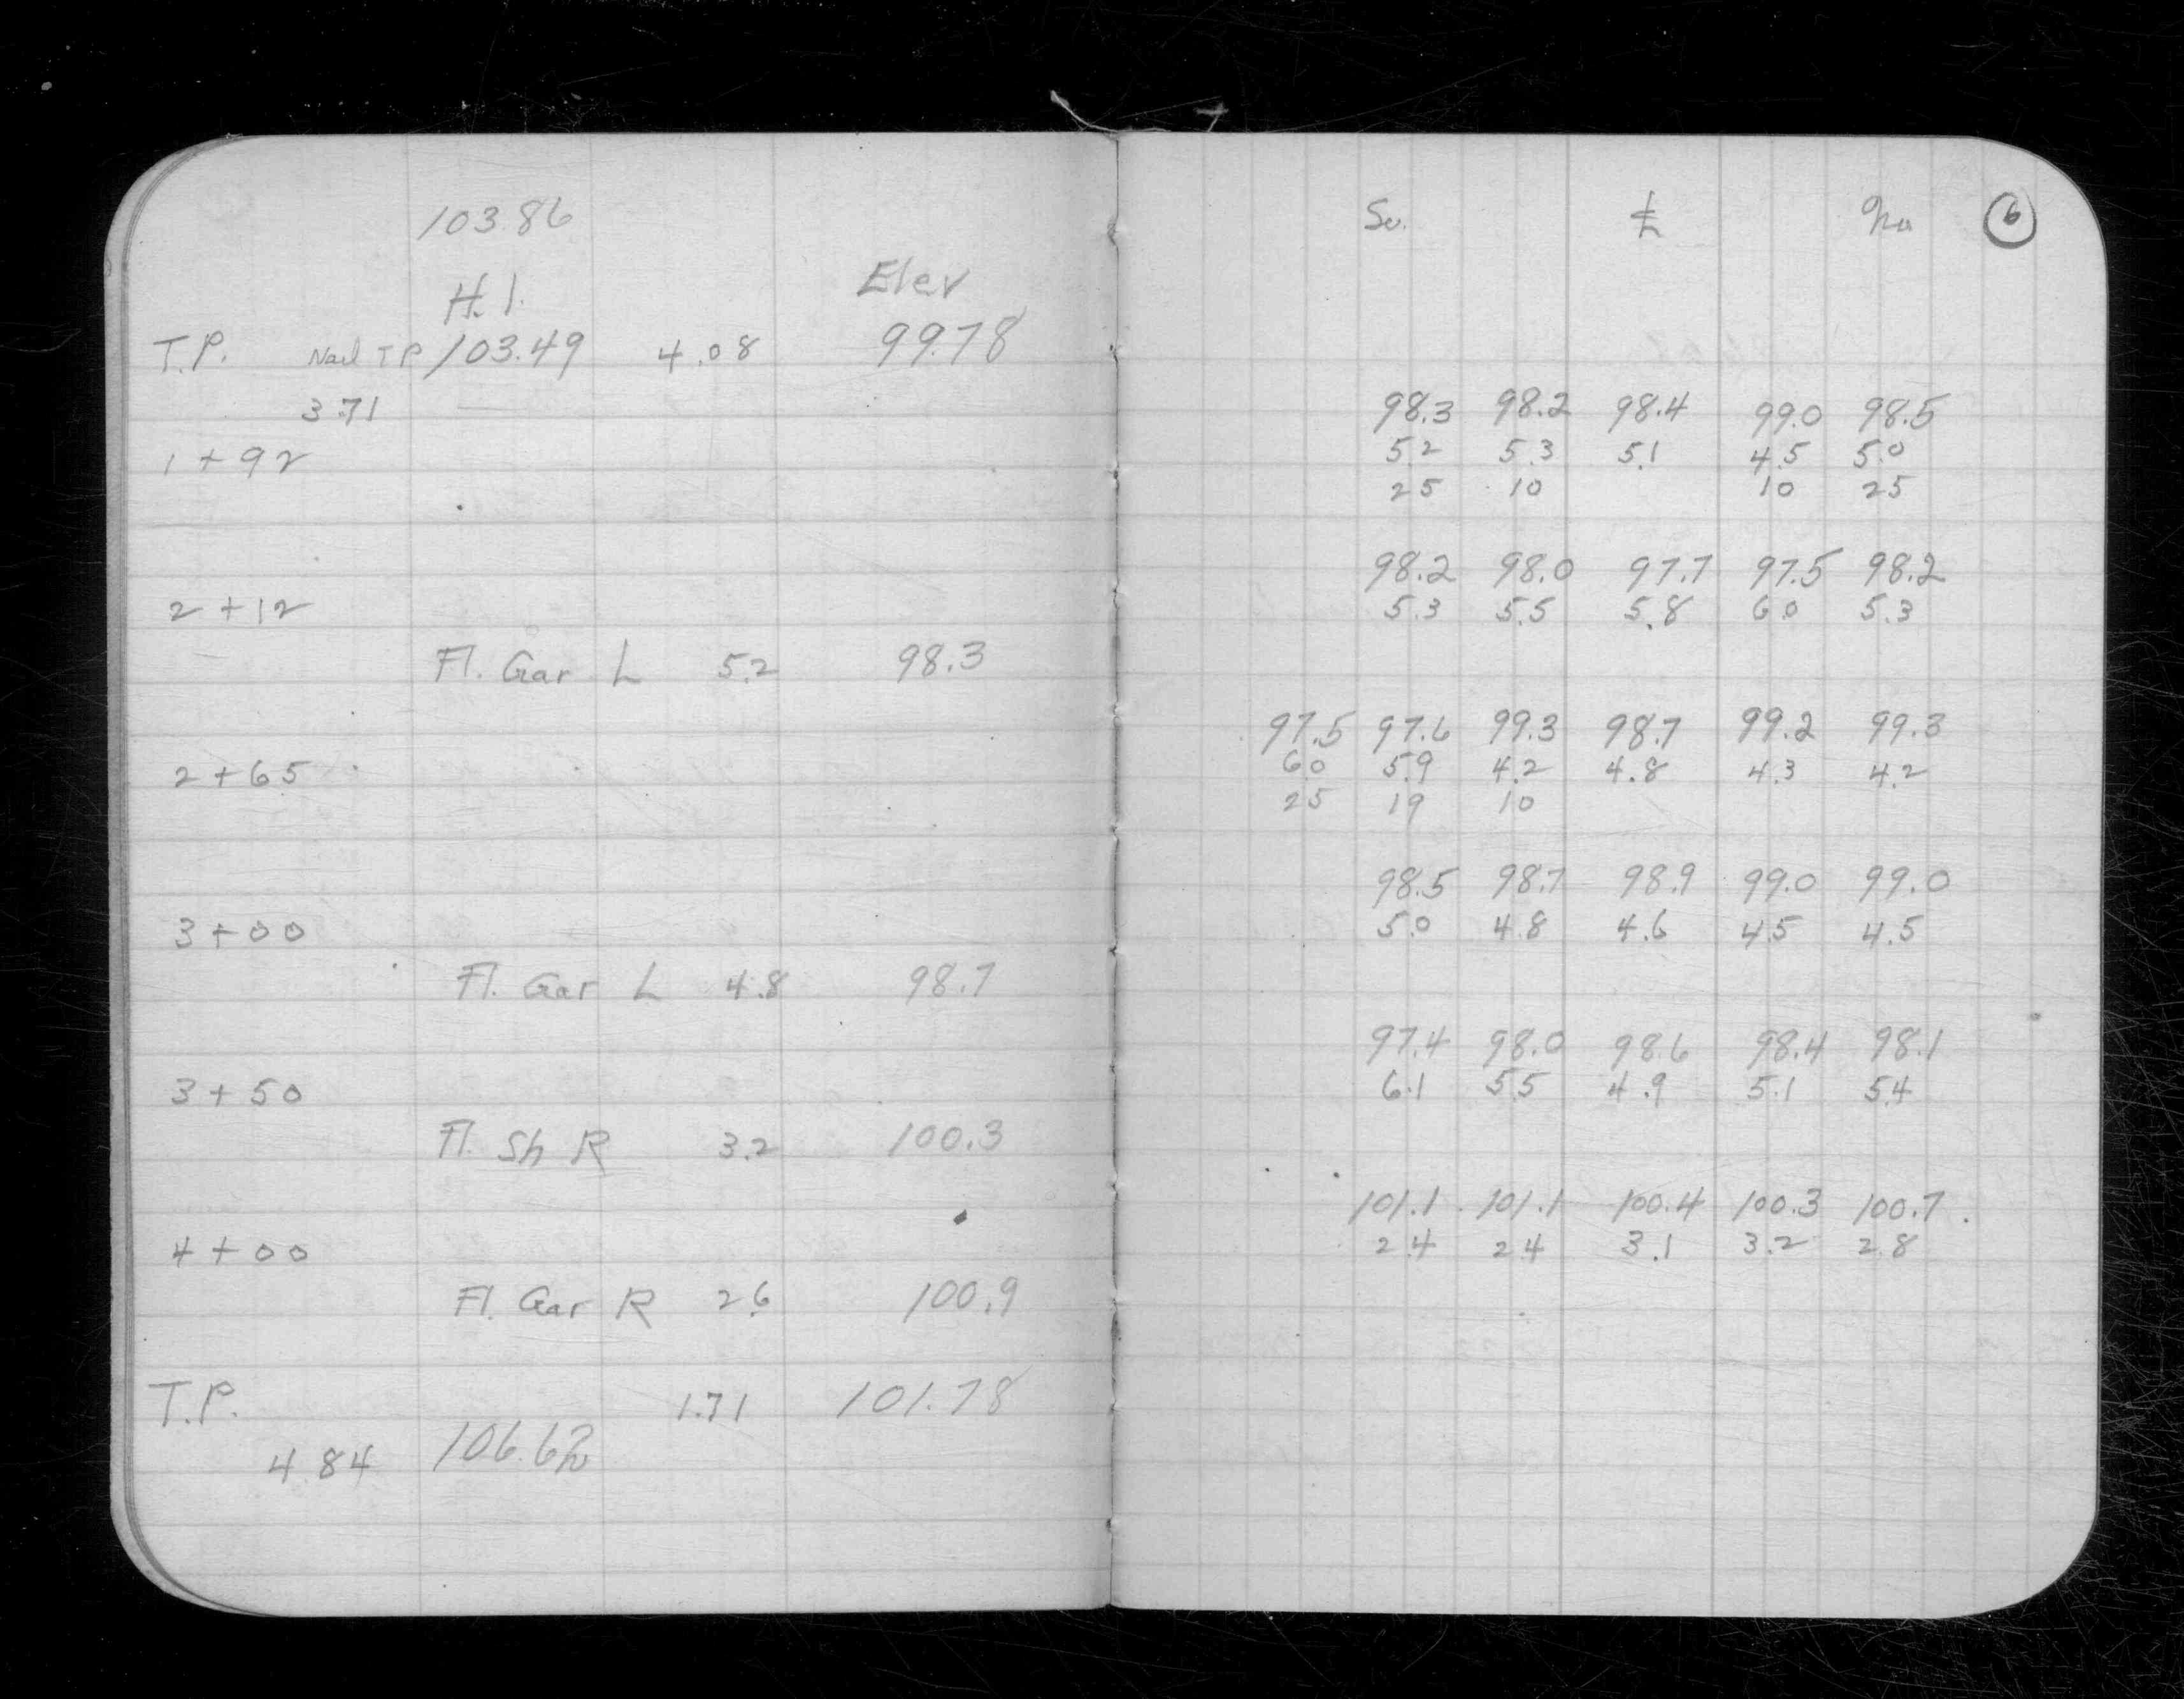 103.86
H.I. Elev
T.P. Nail T P 103.49 4.08 99.78
3.71
1 + 92
2 + 12
Fl. Gar L 5.2 98.3
2 + 65
3 + 00
Fl. Gar L 4.8 98.7
3 + 50
Fl. Sh R 3.2 100.3
4 + 00
Fl. Gar R 2.6 100.9
T.P. 1.71 101.78
4.84 106.62
So. ℄ No 6
98.3 98.2 98.4 99.0 98.5
5.2 5.3 5.1 4.5 5.0
25 10 10 25
98.2 98.0 97.7 97.5 98.2
5.3 5.5 5.8 6.0 5.3
97.5 97.6 99.3 98.7 99.2 99.3
6.0 5.9 4.2 4.8 4.3 4.2
25 19 10
98.5 98.7 98.9 99.0 99.0
5.0 4.8 4.6 4.5 4.5
97.4 98.0 98.6 98.4 98.1
6.1 5.5 4.9 5.1 5.4
101.1 101.1 100.4 100.3 100.7
2.4 2.4 3.1 3.2 2.8